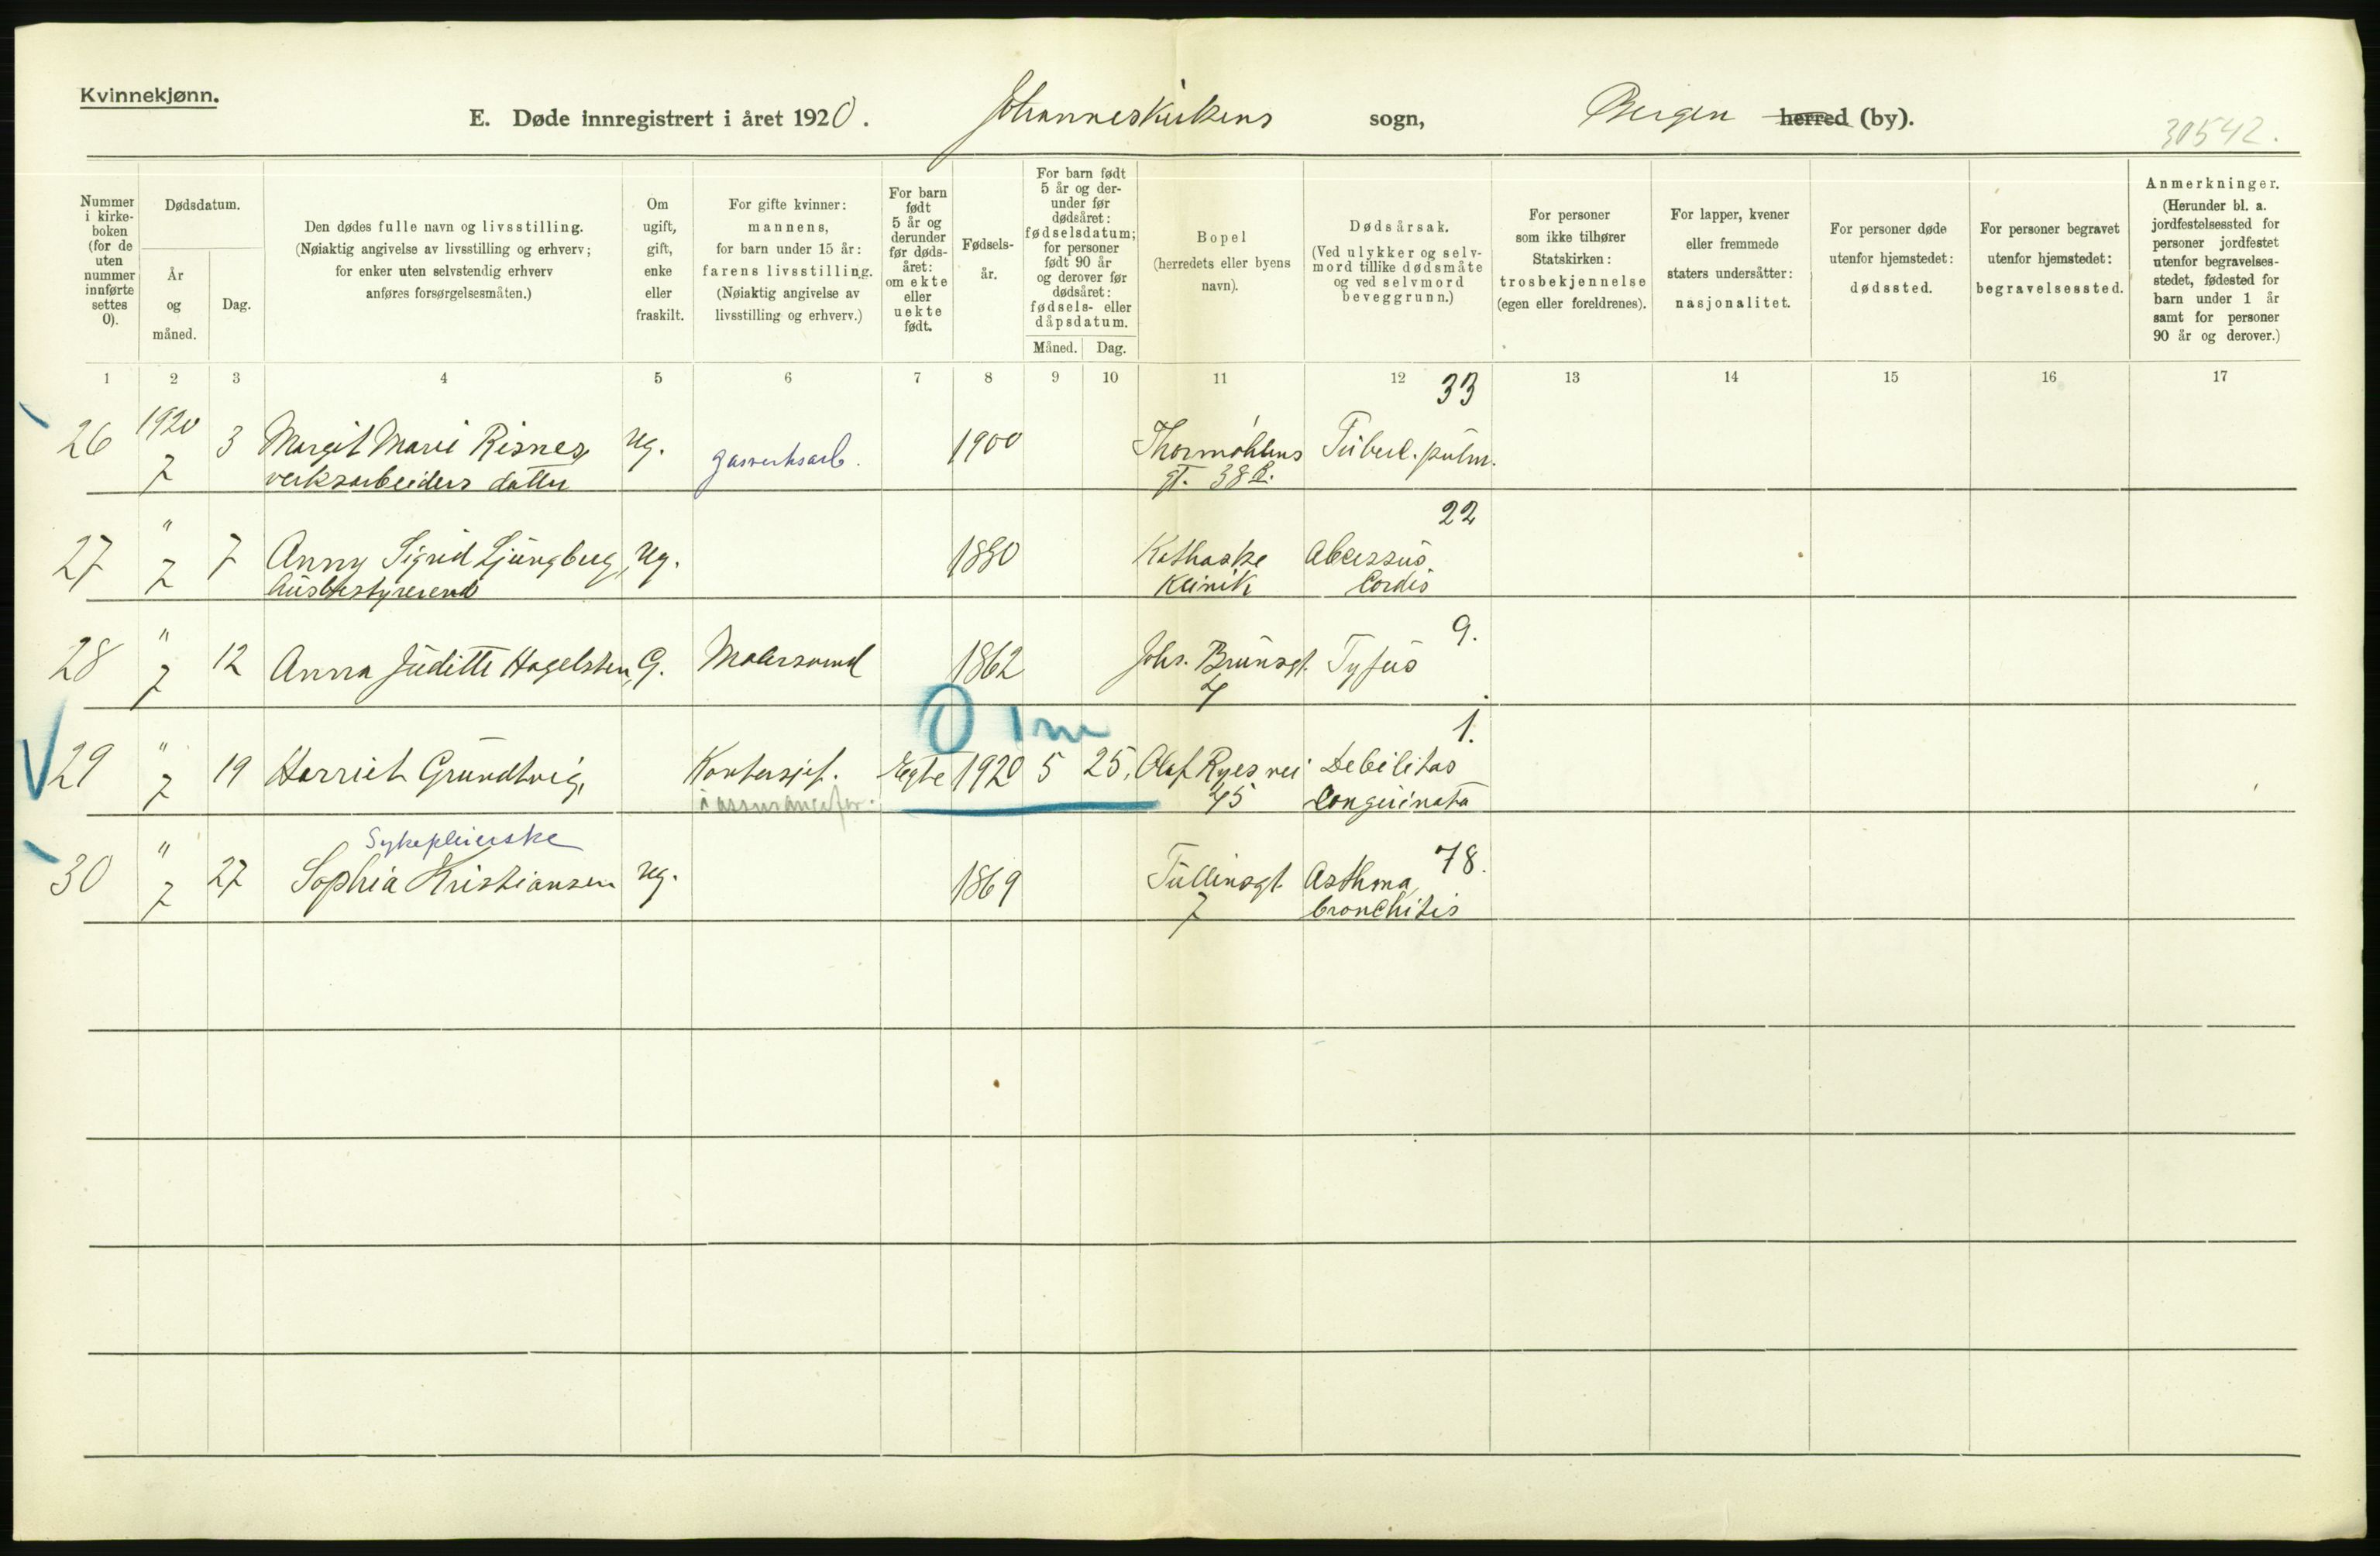 Kvinnekjønn.
E. Døde innregistrert i året 1920. Johanneskirkens sogn, Bergen herred (by).
30542.
Nummer i kirke-boken (for de uten nummer innførte settes 0).
Dødsdatum.
År og måned.
Dag.
Den dødes fulle navn og livsstilling.
(Nøiaktig angivelse av livsstilling og erhverv;
for enker uten selvstendig erhverv
anføres forsørgelsesmåten.)
Om ugift, gift, enke eller fraskilt.
For gifte kvinner:
mannens,
for barn under 15 år:
farens livsstilling.
(Nøiaktig angivelse av
livsstilling og erhverv.)
For barn født 5 år og derunder før døds-året: om ekte eller uekte født.
Fødsels-år.
For barn født 5 år og der-under før dødsåret: fødselsdatum; for personer født 90 år og derover før dødsåret: fødsels- eller dåpsdatum.
Måned. Dag.
Bopel
(herredets eller byens
navn).
Dødsårsak.
(Ved ulykker og selv-
mord tillike dødsmåte
og ved selvmord
beveggrunn.)
For personer
som ikke tilhører
Statskirken:
trosbekjennelse
(egen eller foreldrenes).
For lapper, kvener
eller fremmede
staters undersåtter:
nasjonalitet.
For personer døde
utenfor hjemstedet:
dødssted.
For personer begravet
utenfor hjemstedet:
begravelsessted.
Anmerkninger.
(Herunder bl. a.
jordfestelsessted for
personer jordfestet
utenfor begravelses-
stedet, fødested for
barn under 1 år
samt for personer
90 år og derover.)
1 2 3 4 5 6 7 8 9 10 11 12 13 14 15 16 17
33
26 1920 7 3 Margit Marie Risnes, ug. gasverksarb. 1900 Thormøhlens Tuberl. pulm.
verksarbeiders datter gt. 38 B.
22
27 " 7 7 Anny Sigrid Ljungberg, ug. 1880 Kathaske Abcessus
husbestyrerende Klinik Cordis
9.
28 " 7 12 Anna Juditte Hagelsten, G. Malersvend 1862 Johs. Brunsgt. Tyfus
4
0 1 m
1.
29 " 7 19 Harriet Grundtvig, Kontorsjef. Egte 1920 5 25. Olaf Ryes vei Debilitas
i assuransefor. 45 Congeinata
Sykepleierske
78.
30 " 7 27 Sophia Kristiansen ug. 1869 Tullinsgt Asthma
7 bronchitis